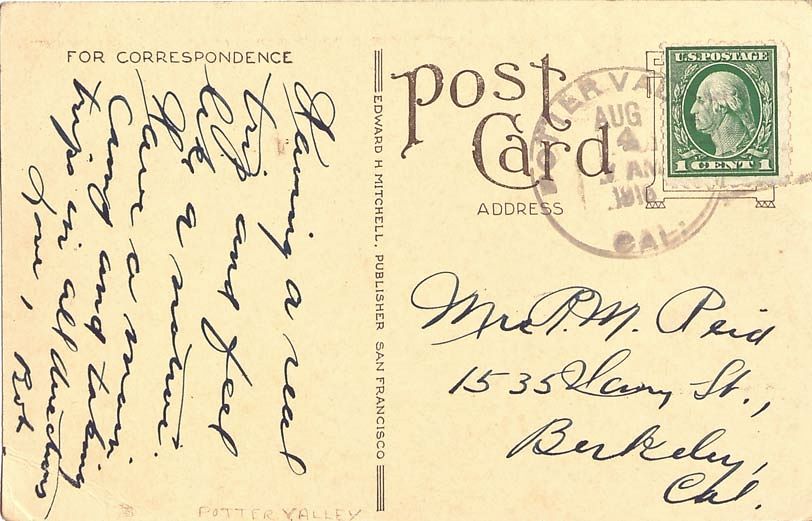 FOR CORRESPONDENCE
Having a real
trip and feel
like a native.
Have a main
camp and taking
trips in all directions
Love, Rob
EDWARD H MITCHELL, PUBLISHER SAN FRANCISCO
Post
Card
ADDRESS
POTTER VAL
AUG
4
AM
CAL.
U.S. POSTAGE
1 CENT 1
Mrs. R. M. Reid
1535 St.,
Berkeley,
Cal.
POTTER VALLEY